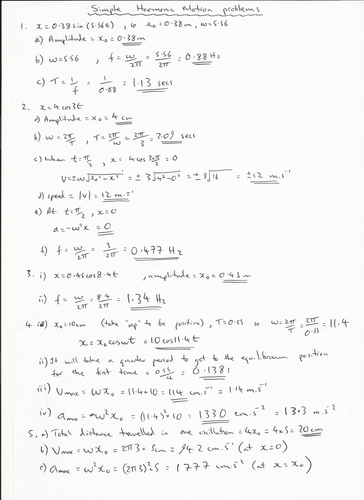 Simple Harmonic Motion problems
1. x = 0.38 sin (5.56t) , so x₀ = 0.38m, ω = 5.56
a) Amplitude = x₀ = 0.38m
b) ω = 5.56 , f = ω/2π = 5.56/2π = 0.88 Hz
c) T = 1/f = 1/0.88 = 1.13 secs
2. x = 4 cos 3t
a) Amplitude = x₀ = 4 cm
b) ω = 2π/T , T = 2π/ω = 2π/3 = 2.09 secs
c) when t = π/2 , x = 4 cos 3π/2 = 0
V = ±ω√(x₀² - x²) = ± 3√(4² - 0²) = ± 3√16 = ±12 m.s⁻¹
d) speed = |V| = 12 m.s⁻¹
e) At t = π/2 , x = 0
a = -ω²x = 0
f) f = ω/2π = 3/2π = 0.477 Hz
3. i) x = 0.45 cos 8.4t , amplitude = x₀ = 0.45 m
ii) f = ω/2π = 8.4/2π = 1.34 Hz
4 i) x₀ = 10cm (take "up" to be positive) , T = 0.55 so ω = 2π/T = 2π/0.55 = 11.4
x = x₀ cos ωt = 10 cos 11.4t
ii) It will take a quarter period to get to the equilibrium position
for the first time = 0.55/4 = 0.138s
iii) Vmax = ωx₀ = 11.4 × 10 = 114 cm.s⁻¹ = 1.14 m.s⁻¹
iv) amax = ω²x₀ = (11.4)² × 10 = 1330 cm.s⁻² = 13.3 m.s⁻²
5. a) Total distance travelled in one oscillation = 4x₀ = 4×5 = 20cm
b) Vmax = ωx₀ = 2π3 × 5cm = 94.2 cm.s⁻¹ (at x = 0)
c) amax = ω²x₀ = (2π3)² 5 = 1777 cm.s⁻² (at x = x₀)